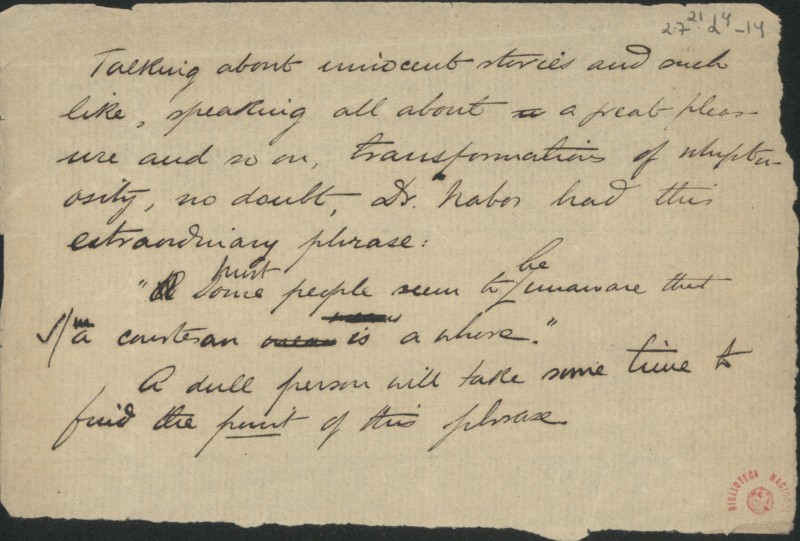 27 21 d4-14
Talking about innocent stories and such
like, speaking all about a great pleas
ure and so on, transformations of
osity, no doubt, Dr. Nabos had this
extraordinary phrase:
must be
"Some people seem to unaware that
a courtesan is a whore."
A dull person will take some time to
find the point of this phrase.
BIBLIOTECA NACIO